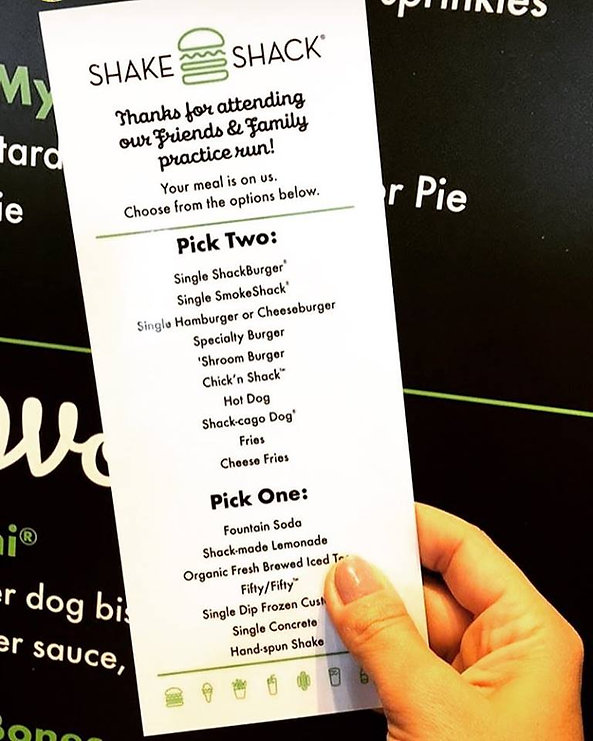 SHAKE SHACK®
Thanks for attending
our Friends & Family
practice run!
Your meal is on us.
Choose from the options below.
Pick Two:
Single ShackBurger®
Single SmokeShack®
Single Hamburger or Cheeseburger
Specialty Burger
'Shroom Burger
Chick'n Shack™
Hot Dog
Shack-cago Dog®
Fries
Cheese Fries
Pick One:
Fountain Soda
Shack-made Lemonade
Organic Fresh Brewed Iced
Fifty/Fifty™
Single Dip Frozen
Single Concrete
Hand-spun Shake
My
r Pie
er dog
er sauce,